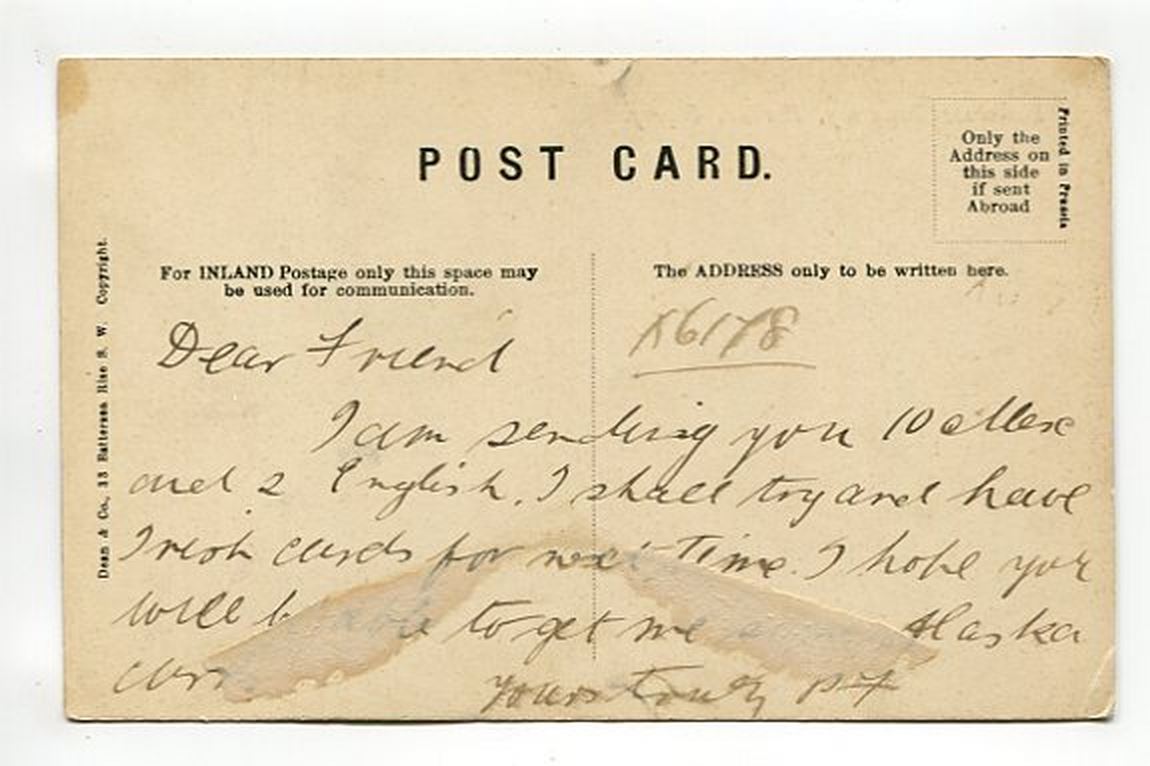 POST CARD.
Only the
Address on
this side
if sent
Abroad
Printed in Prussia
Dean & Co., 33 Battersea Rise S. W. Copyright.
For INLAND Postage only this space may
be used for communication.
The ADDRESS only to be written here.
X6178
Dear Friend
I am sending you 10
and 2 English. I shall try and have
Irish cards for next time. I hope you
will be able to get me Alaska
Yours truly